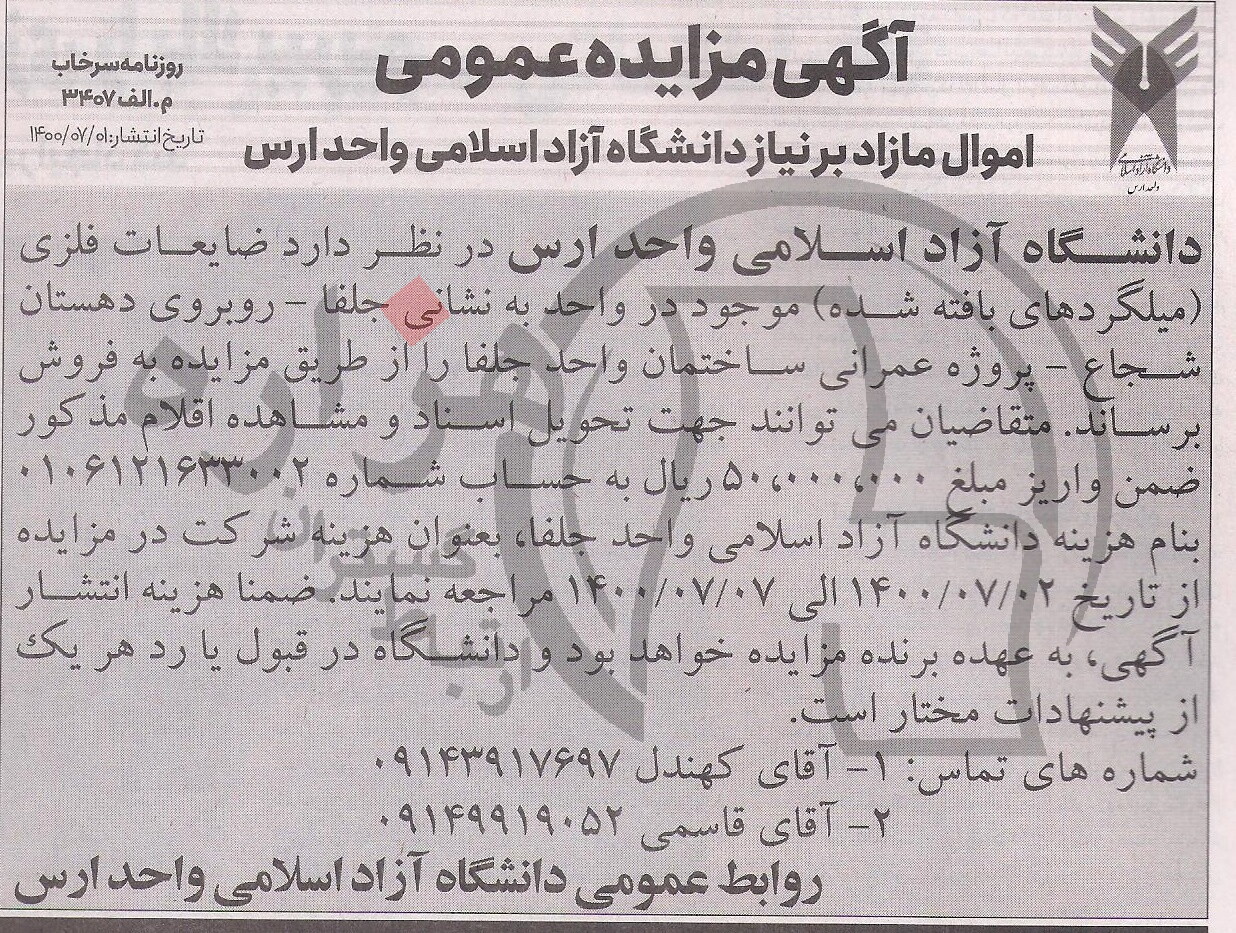 آگهی مزایده عمومی
اموال مازاد بر نیاز دانشگاه آزاد اسلامی واحد ارس
روزنامه سرخاب
م.الف ۳۴۰۷
تاریخ انتشار: ۱۴۰۰/۰۷/۰۱
دانشگاه آزاد اسلامی
واحد ارس
دانشگاه آزاد اسلامی واحد ارس در نظر دارد ضایعات فلزی
(میلگردهای بافته شده) موجود در واحد به نشانی جلفا – روبروی دهستان
شجاع – پروژه عمرانی ساختمان واحد جلفا را از طریق مزایده به فروش
برساند. متقاضیان می توانند جهت تحویل اسناد و مشاهده اقلام مذکور
ضمن واریز مبلغ ۵۰،۰۰۰،۰۰۰ ریال به حساب شماره ۰۱۰۶۱۲۱۶۳۳۰۰۲
بنام هزینه دانشگاه آزاد اسلامی واحد جلفا، بعنوان هزینه شرکت در مزایده
از تاریخ ۱۴۰۰/۰۷/۰۲ الی ۱۴۰۰/۰۷/۰۷ مراجعه نمایند. ضمنا هزینه انتشار
آگهی، به عهده برنده مزایده خواهد بود و دانشگاه در قبول یا رد هر یک
از پیشنهادات مختار است.
شماره های تماس: ۱– آقای کهندل ۰۹۱۴۳۹۱۷۶۹۷
۲– آقای قاسمی ۰۹۱۴۹۹۱۹۰۵۲
روابط عمومی دانشگاه آزاد اسلامی واحد ارس
هزاره
گستران
ارتباط